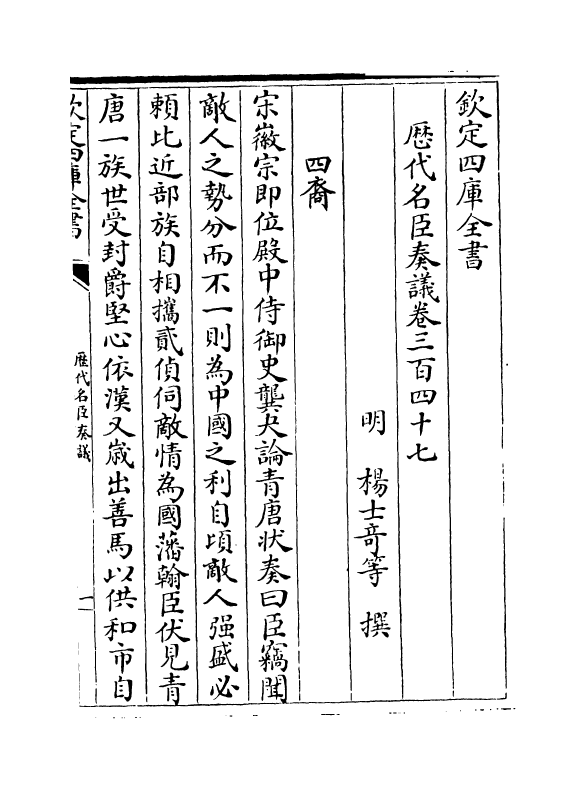 欽定四庫全書
歴代名臣奏議卷三百四十七
明　楊士竒等　撰
四裔
宋徽宗即位殿中侍御史龔夬論青唐狀奏曰臣竊聞
敵人之勢分而不一則為中國之利自頃敵人强盛必
頼比近部族自相攜貳偵伺敵情為國藩翰臣伏見青
唐一族世受封爵堅心依漢又歳出善馬以供和市自
欽定四庫全書
歴代名臣奏議
一